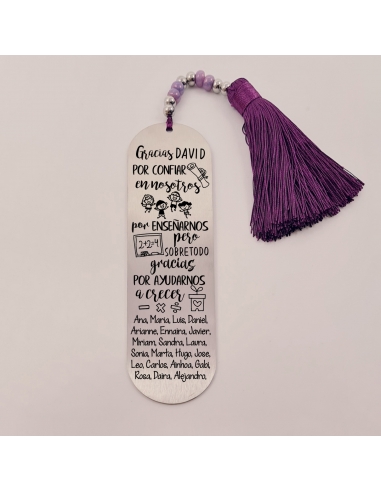 Gracias DAVID
POR CONFIAR
en nosotros
por ENSEÑARNOS
2+2=4
pero
SOBRETODO
gracias
POR AYUDARNOS
a crecer
- × ÷
Ana, María, Luis, Daniel,
Arianne, Ennaira, Javier,
Miriam, Sandra, Laura,
Sonia, Marta, Hugo, Jose,
Leo, Carlos, Ainhoa, Gabi,
Rosa, Daira, Alejandro,